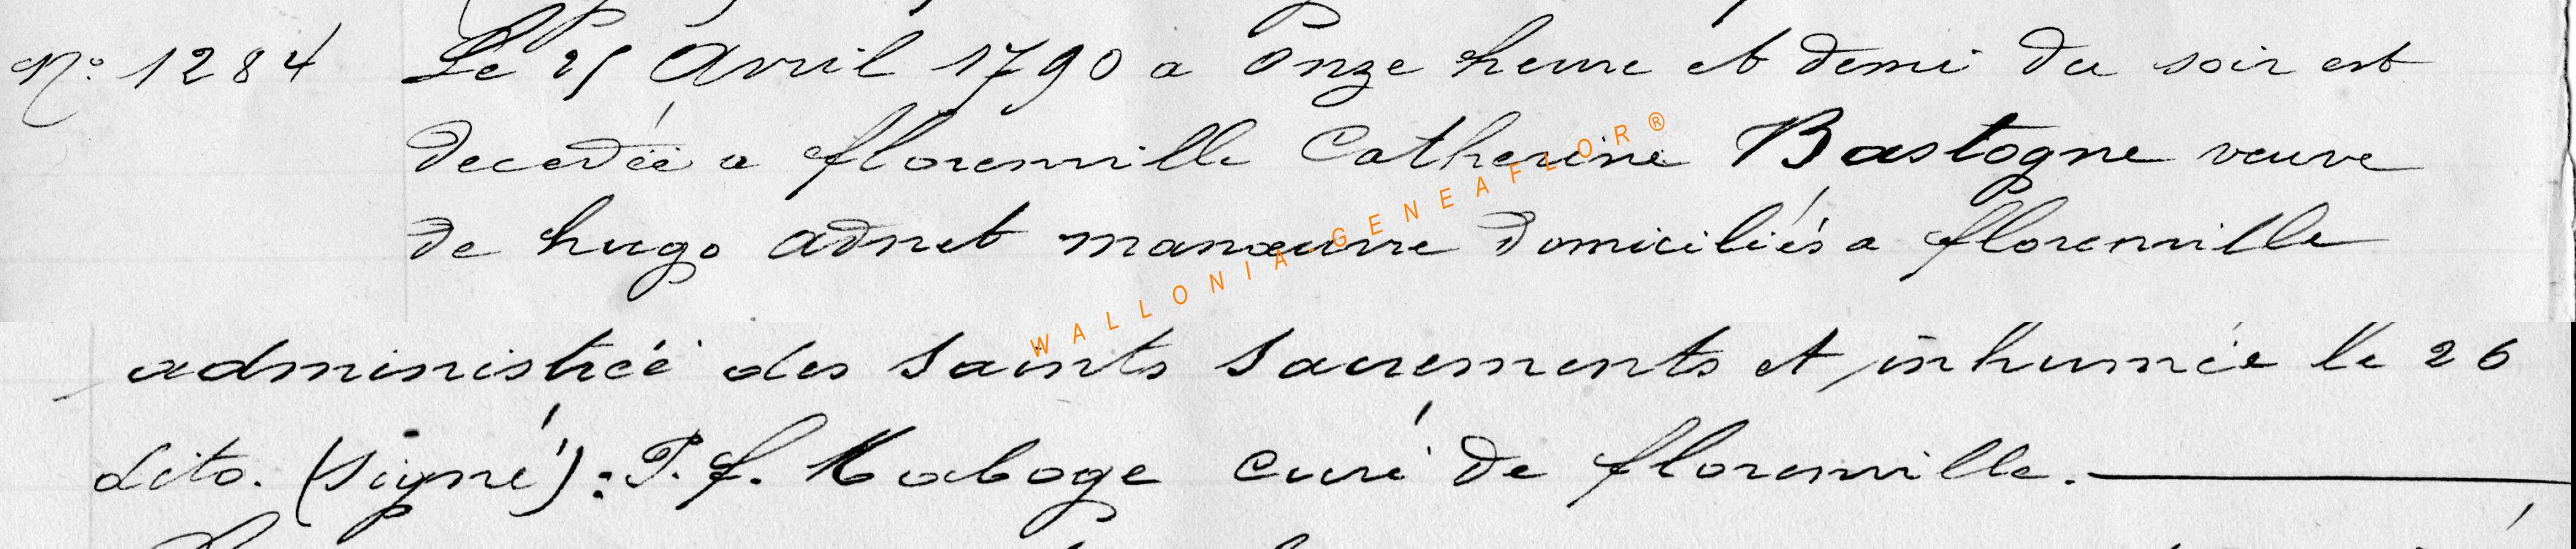 N° 1284 Le 25 Avril 1790 a Onze heure et demi du soir est
decedéé a florenville Catherine Bastogne veuve
de hugo adnet manœuvre domiciliés a florenville
administreé des saints sacrements et inhumée le 26
dito. (signé): P. f. Maboge curé de florenville.
WALLONIA-GENEAFLOR®